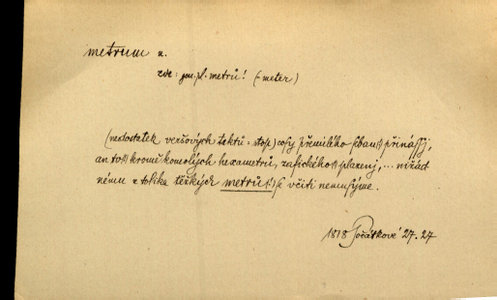 metrum n.
zde: gen. pl. metrů! (= meter)
(nedostatek veršových taktů = stop) cosy přemilého
an to kromě komolých hexametrů, zafického
nému z tolika těžkých metrů(!) se včiti nemusýme.
1818 Počátkové 27.27